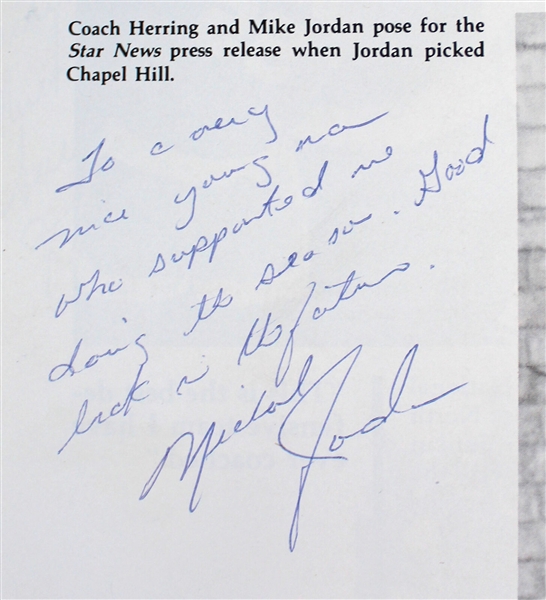 Coach Herring and Mike Jordan pose for the
Star News press release when Jordan picked
Chapel Hill.
To a very
nice young man
who supported me
doing the season. Good
luck in the future.
Michael Jordan